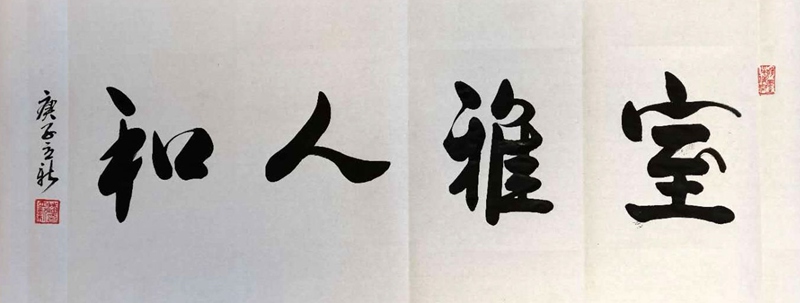 室雅人和
庚子立新